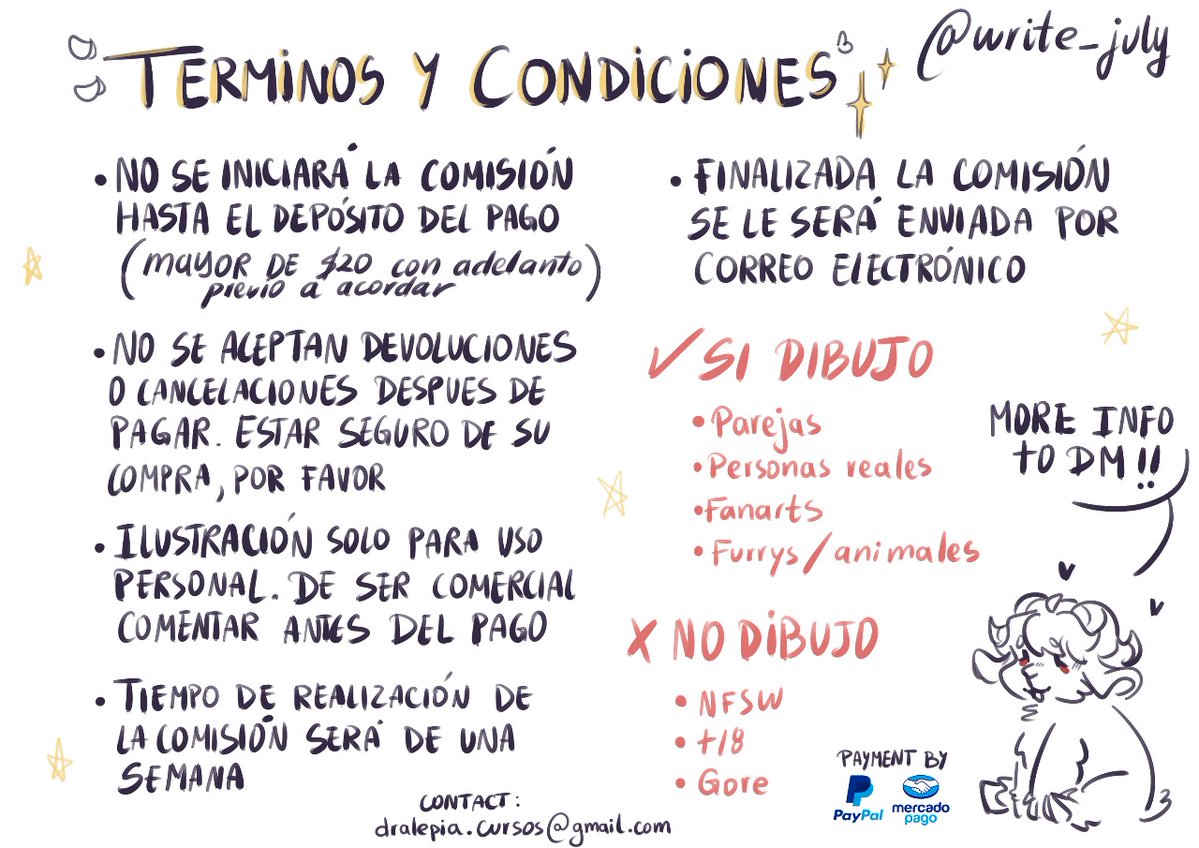 TERMINOS Y CONDICIONES
@write_july
• NO SE INICIARÁ LA COMISIÓN
HASTA EL DEPÓSITO DEL PAGO
(MAYOR DE $20 con adelanto)
previo a acordar
• NO SE ACEPTAN DEVOLUCIONES
O CANCELACIONES DESPUES DE
PAGAR. ESTAR SEGURO DE SU
COMPRA, POR FAVOR
• ILUSTRACIÓN SOLO PARA USO
PERSONAL. DE SER COMERCIAL
COMENTAR ANTES DEL PAGO
• TIEMPO DE REALIZACIÓN DE
LA COMISIÓN SERÁ DE UNA
SEMANA
• FINALIZADA LA COMISIÓN
SE LE SERÁ ENVIADA POR
CORREO ELECTRÓNICO
✓ SI DIBUJO
• Parejas
• Personas reales
• Fanarts
• Furrys/animales
X NO DIBUJO
• NFSW
• +18
• Gore
MORE INFO
TO DM!!
PAYMENT BY
PayPal
mercado
pago
CONTACT:
dralepia.cursos@gmail.com